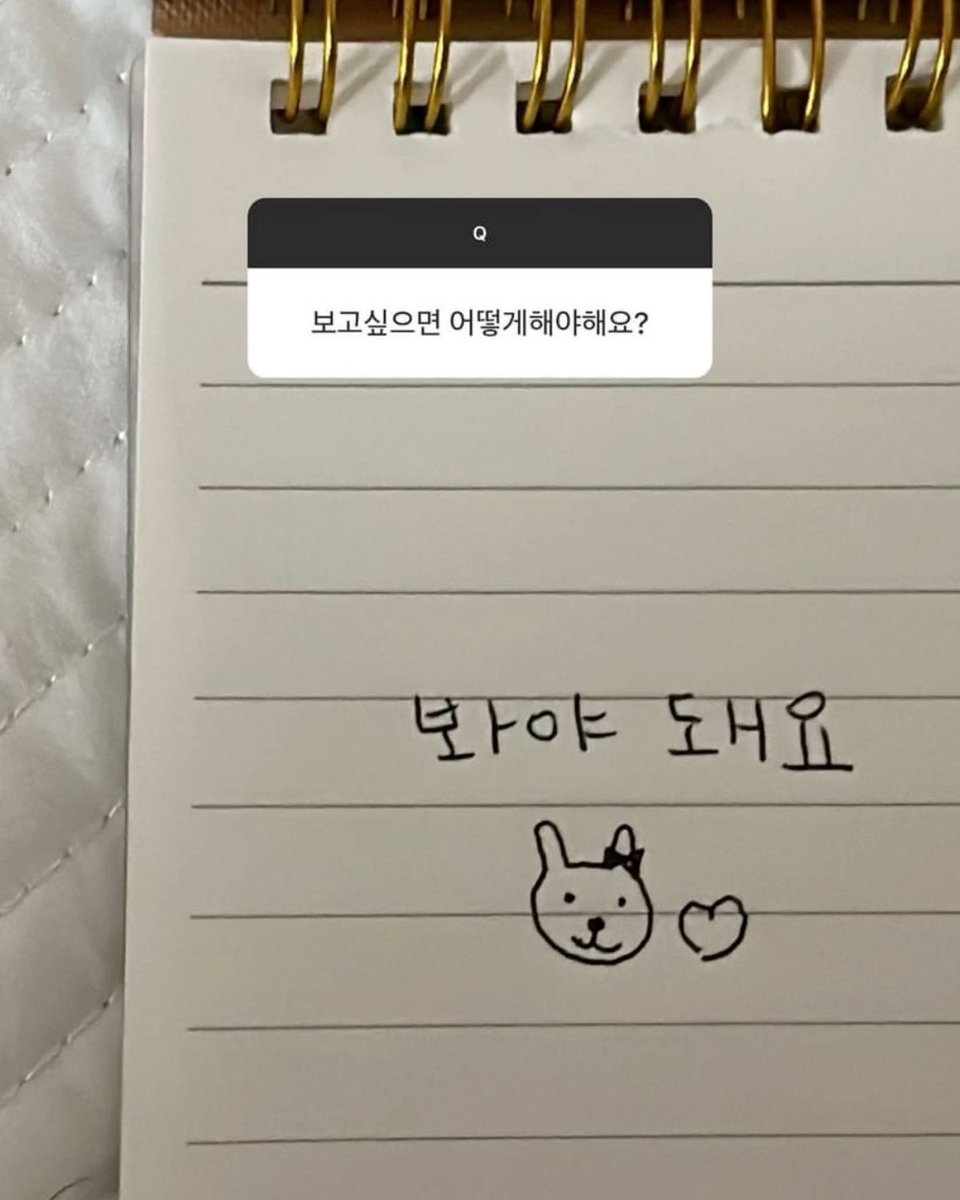 Q
보고싶으면 어떻게해야해요?
보아야 돼요